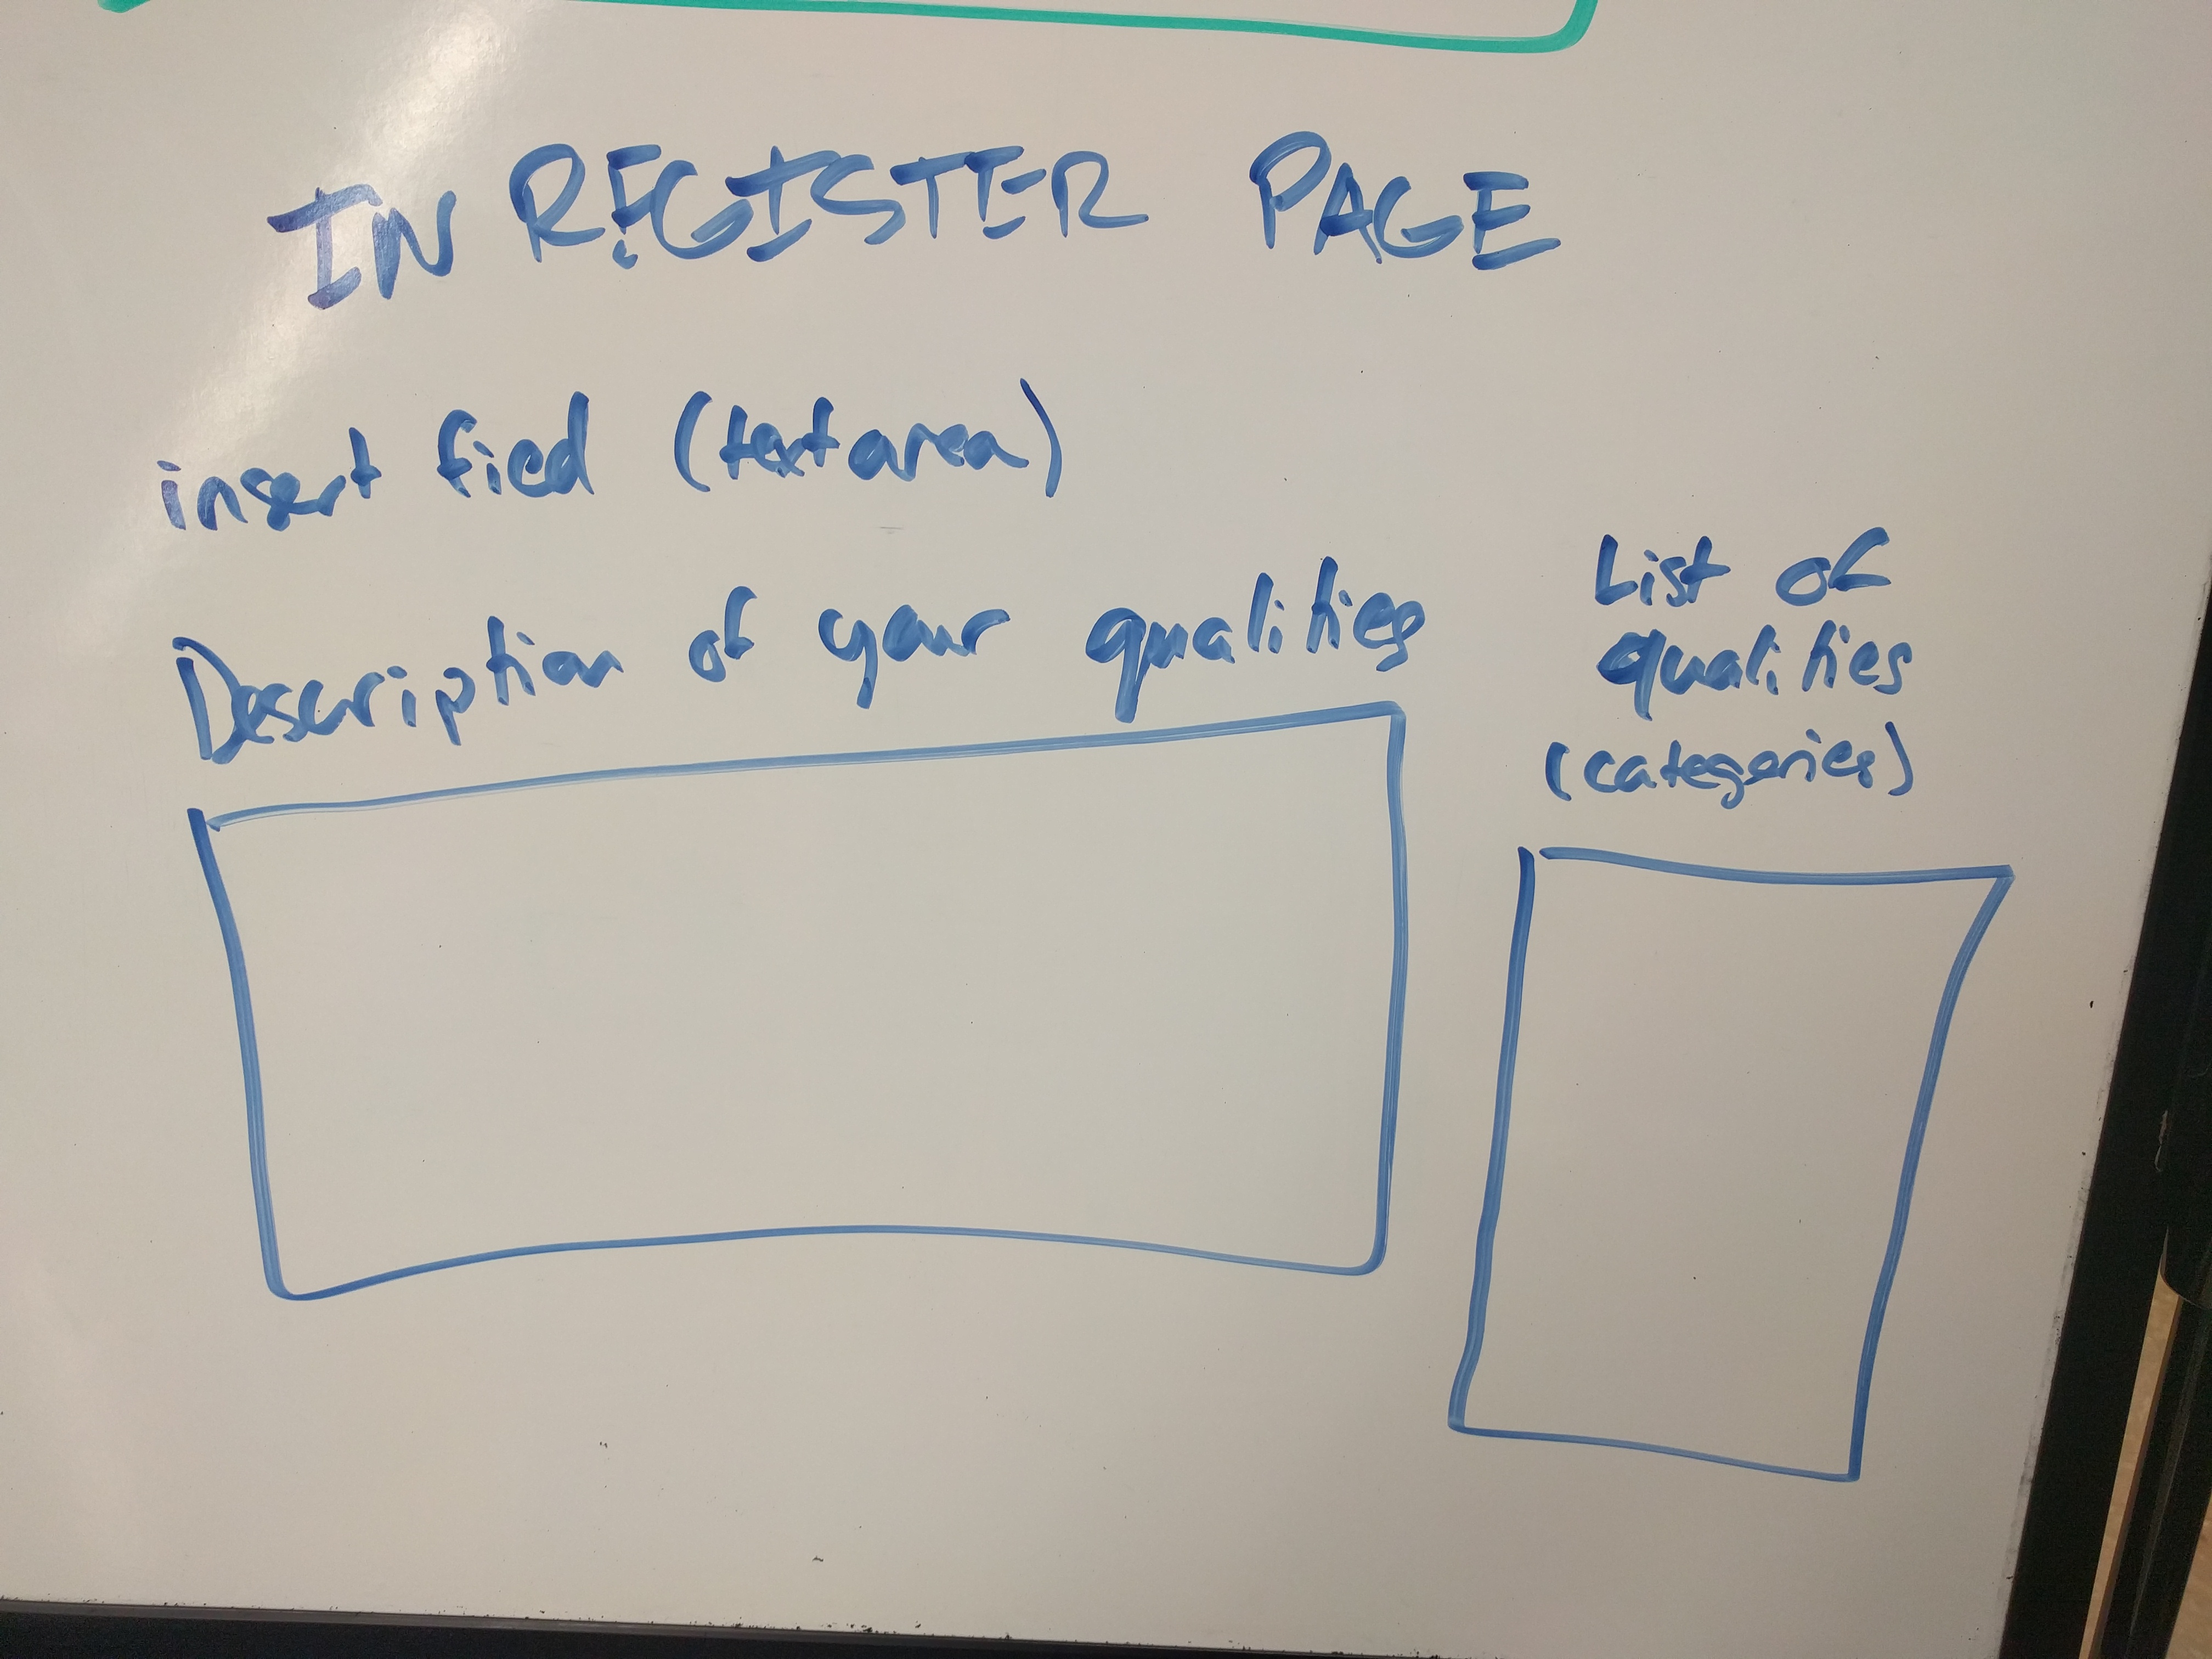 IN REGISTER PAGE
insert fied (textarea)
Description of your qualities
List of
qualities
(categories)